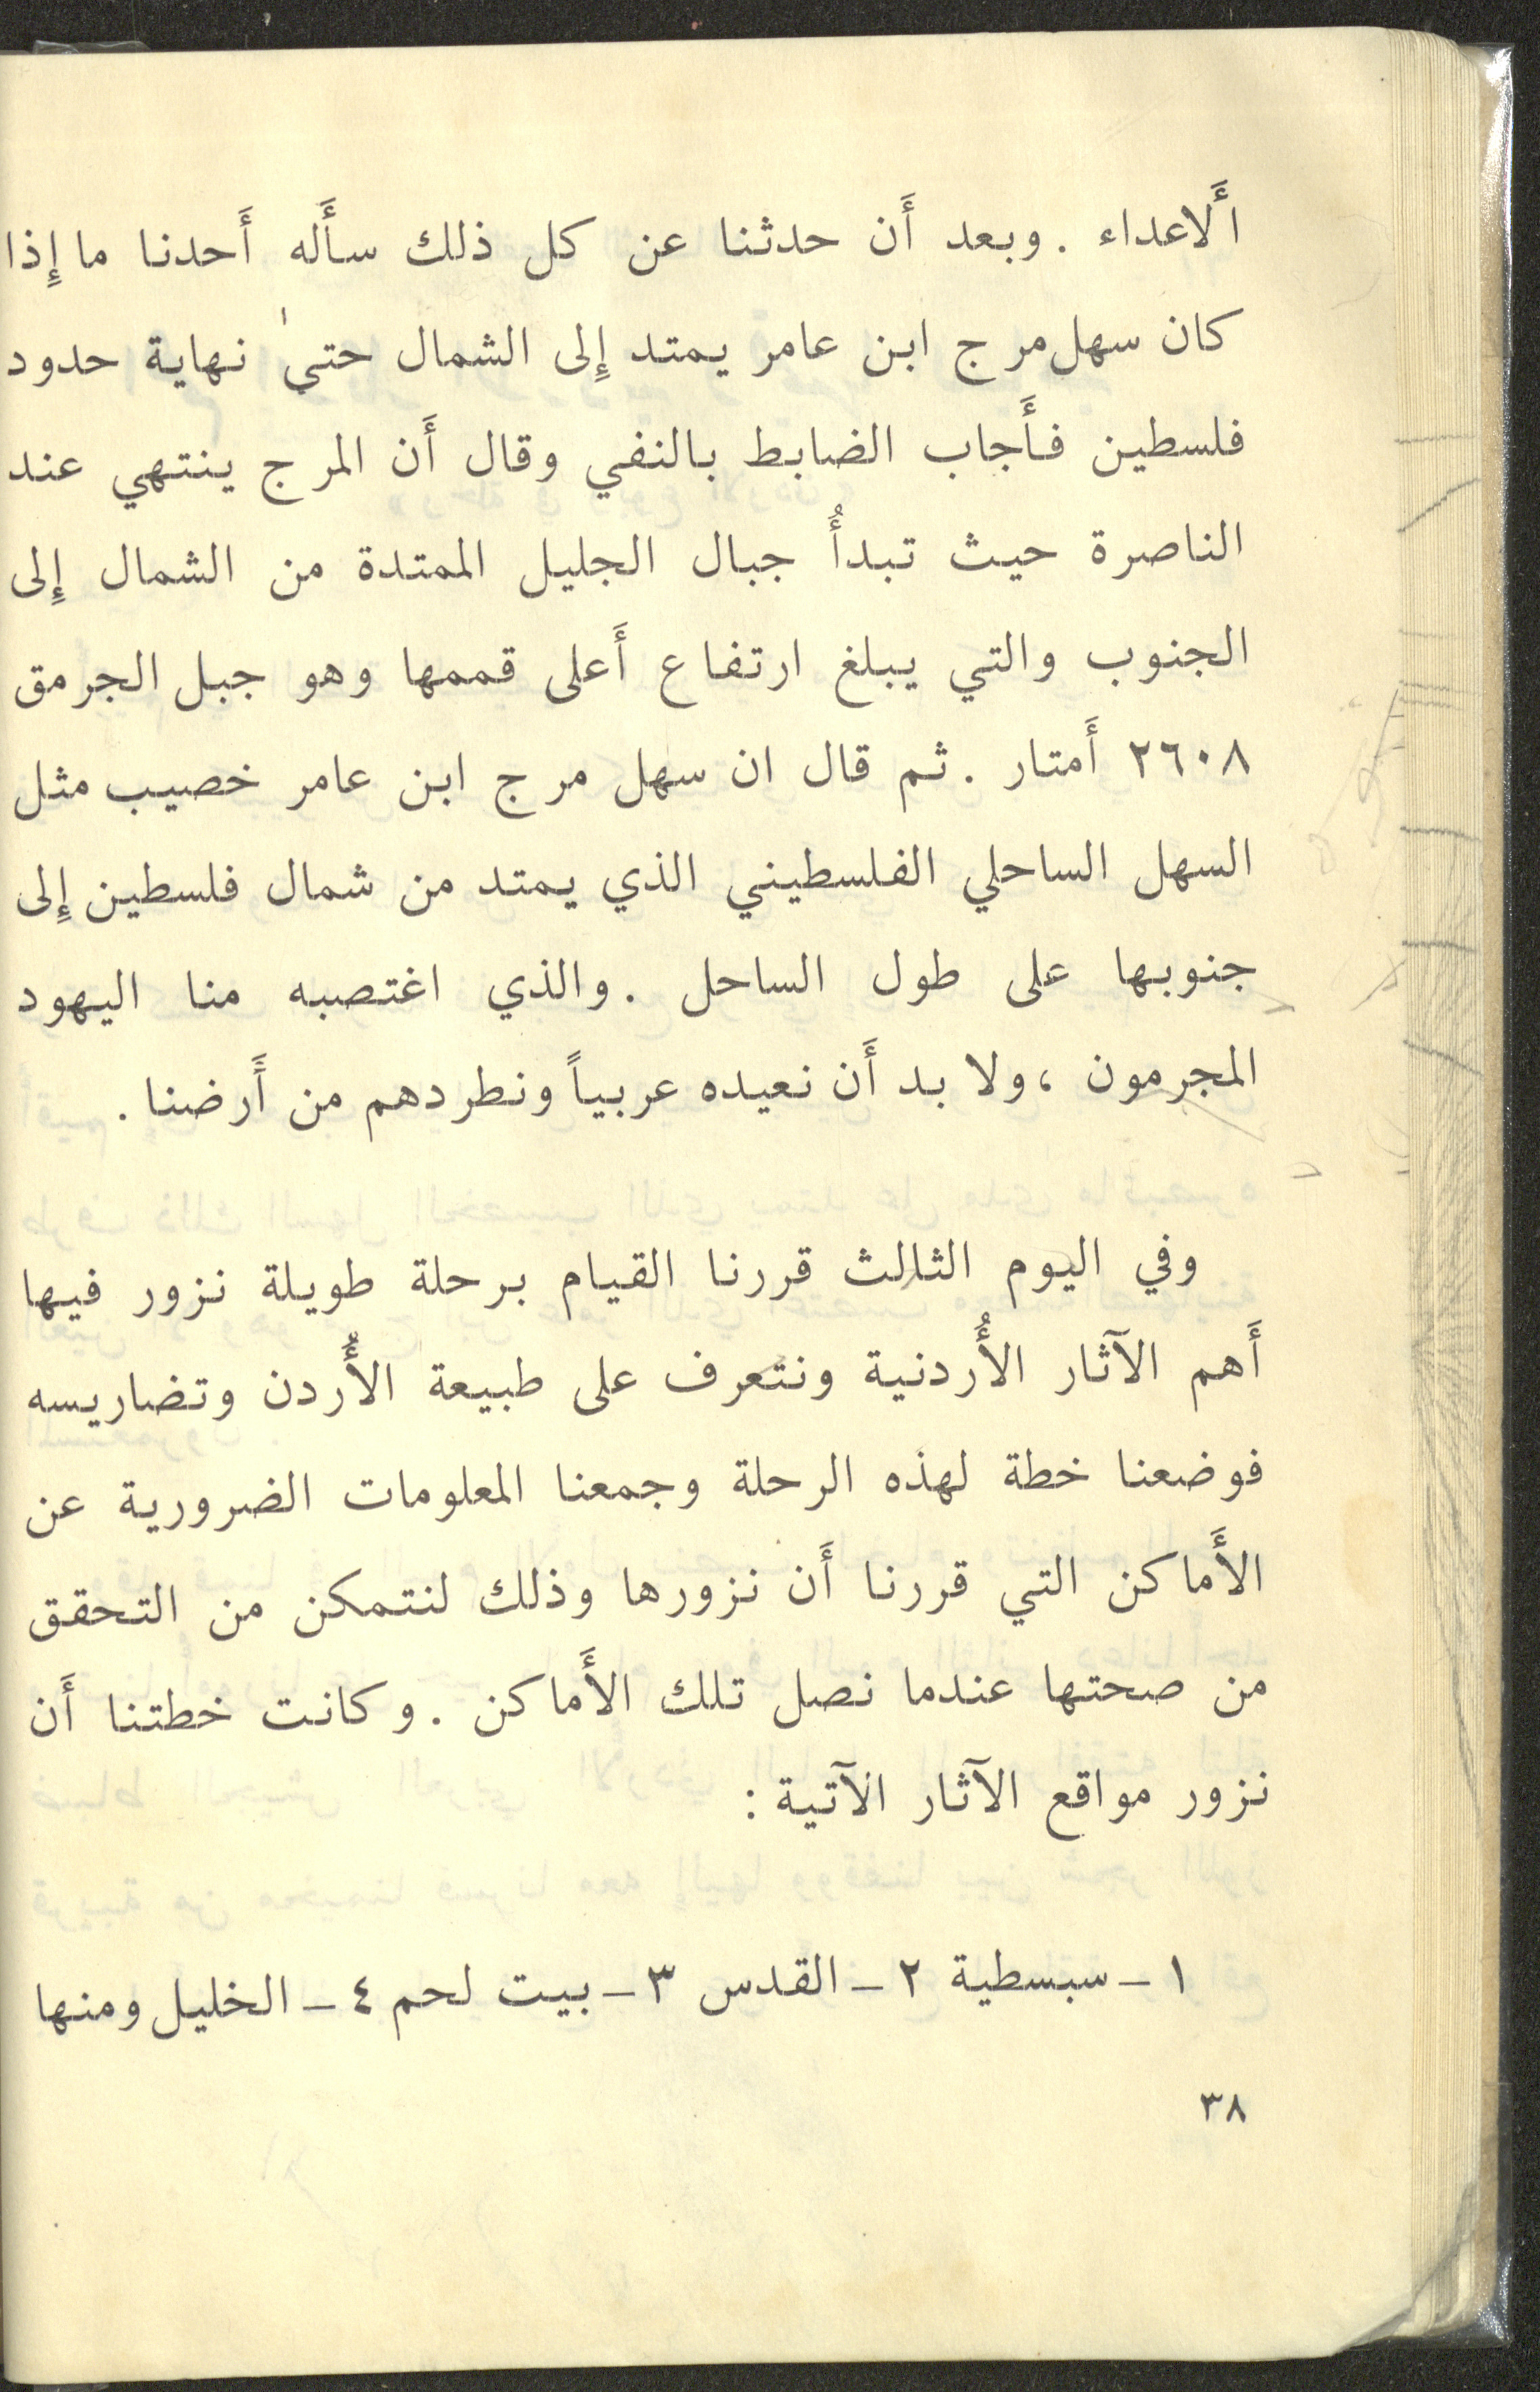 أَلاعداء . وبعد أَن حدثنا عن كل ذلك سأَله أَحدنا ما إِذا
كان سهل مرج ابن عامر يمتد إِلى الشمال حتىٰ نهاية حدود
فلسطين فأَجاب الضابط بالنفي وقال أَن المرج ينتهي عند
الناصرة حيث تبدأُ جبال الجليل الممتدة من الشمال إِلى
الجنوب والتي يبلغ ارتفاع أَعلى قممها وهو جبل الجرمق
٢٦٠٨ أَمتار . ثم قال ان سهل مرج ابن عامر خصيب مثل
السهل الساحلي الفلسطيني الذي يمتد من شمال فلسطين إِلى
جنوبها على طول الساحل . والذي اغتصبه منا اليهود
المجرمون ، ولا بد أَن نعيده عربياً ونطردهم من أَرضنا .
وفي اليوم الثالث قررنا القيام برحلة طويلة نزور فيها
أَهم الآثار الأُردنية ونتعرف على طبيعة الأُردن وتضاريسه
فوضعنا خطة لهذه الرحلة وجمعنا المعلومات الضرورية عن
الأَماكن التي قررنا أَن نزورها وذلك لنتمكن من التحقق
من صحتها عندما نصل تلك الأَماكن . وكانت خطتنا أَن
نزور مواقع الآثار الآتية :
١ – سبسطية ٢ – القدس ٣ – بيت لحم ٤ – الخليل ومنها
٣٨